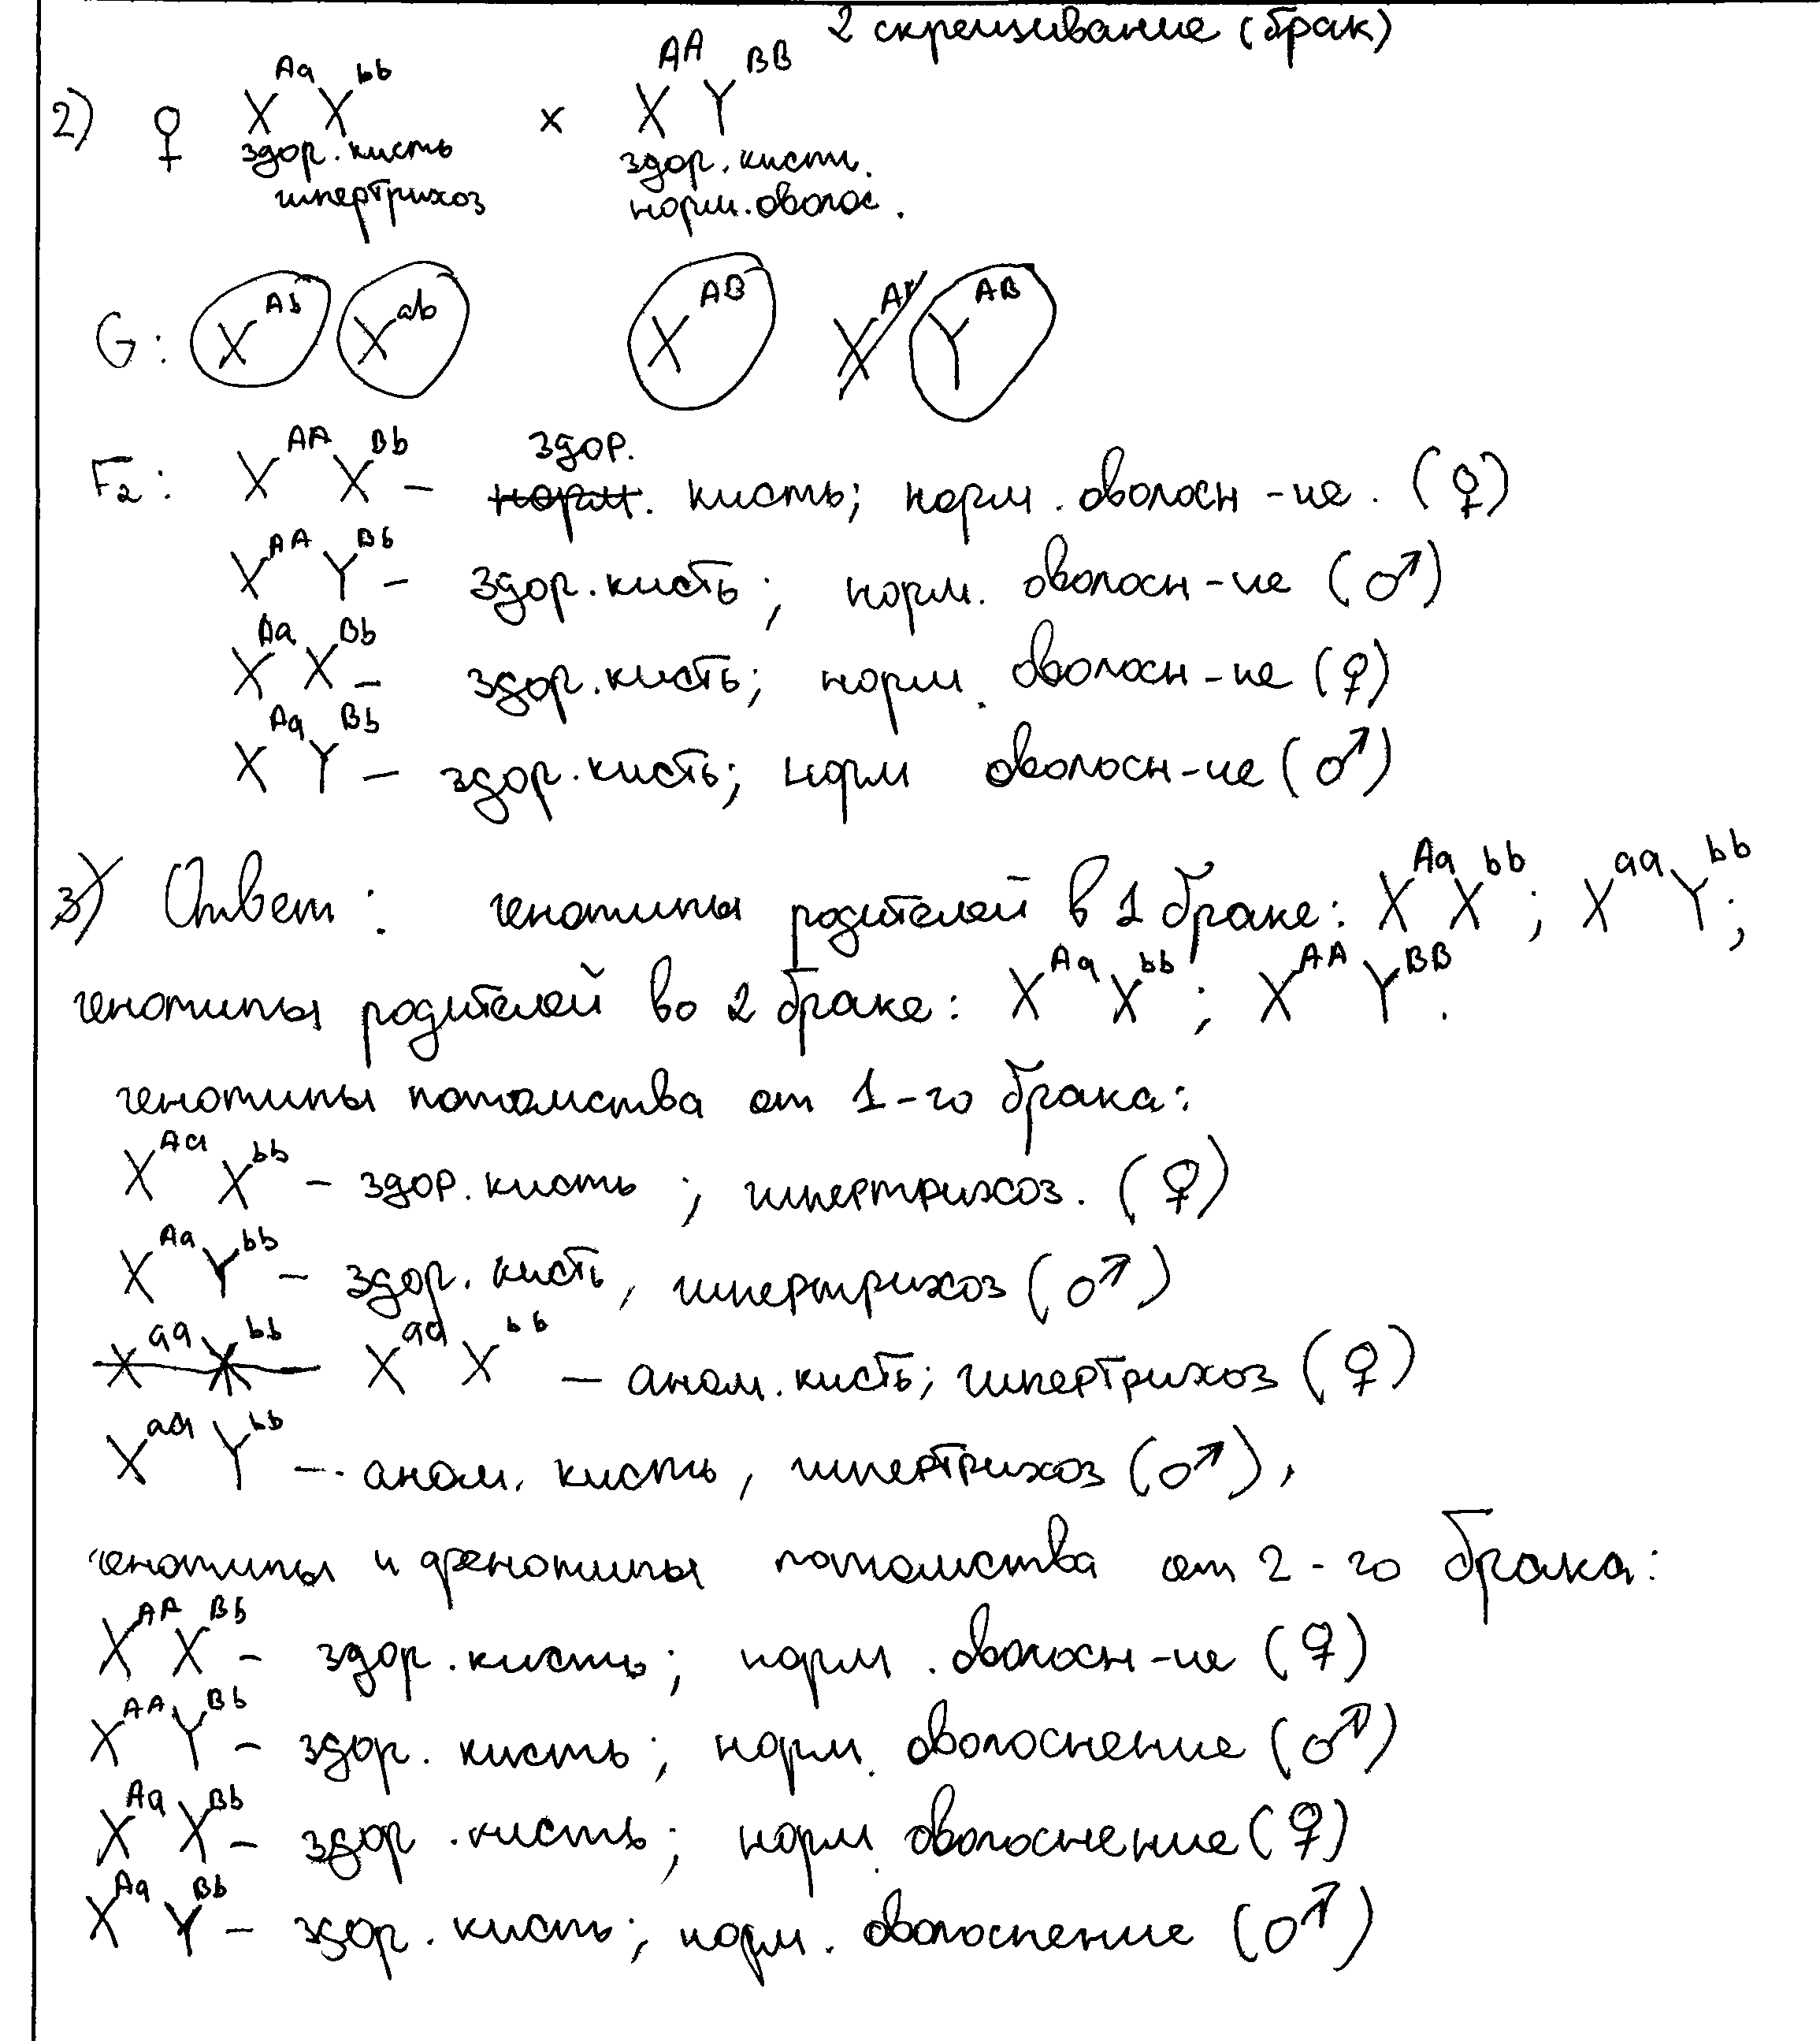 2 скрещивание (брак)
2) ♀ X^Aa X^bb × X^AA Y^BB
здор. кисть здор. кисть.
гипертрихоз норм. оволос.
G: X^Ab X^ab X^AB Y^AB
F₂: X^AA X^Bb – здор. кисть; норм. оволосн-ие. (♀)
X^AA Y^Bb – здор. кисть; норм. оволосн-ие (♂)
X^Aa X^Bb – здор. кисть; норм. оволосн-ие (♀)
X^Aa Y^Bb – здор. кисть; норм оволосн-ие (♂)
Ответ: генотипы родителей в 1 браке: X^Aa X^bb; X^aa Y^bb;
генотипы родителей во 2 браке: X^Aa X^bb; X^AA Y^BB.
генотипы потомства от 1-го брака:
X^Aa X^bb – здор. кисть; гипертрихоз. (♀)
X^Aa Y^bb – здор. кисть, гипертрихоз (♂)
X^aa X^bb – аном. кисть; гипертрихоз (♀)
X^aa Y^bb – аном. кисть, гипертрихоз (♂),
генотипы и фенотипы потомства от 2-го брака:
X^AA X^Bb – здор. кисть; норм. оволосн-ие (♀)
X^AA Y^Bb – здор. кисть; норм. оволоснение (♂)
X^Aa X^Bb – здор. кисть; норм. оволоснение (♀)
X^Aa Y^Bb – здор. кисть; норм. оволоснение (♂)